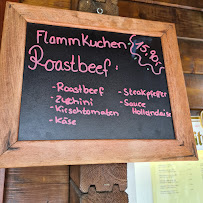 FlammKuchen 15,80
Roastbeef
- Roastbeef
- Zuchini
- Kirschtomaten
- Käse
- Steakpfeffer
- Sauce
Hollandaise